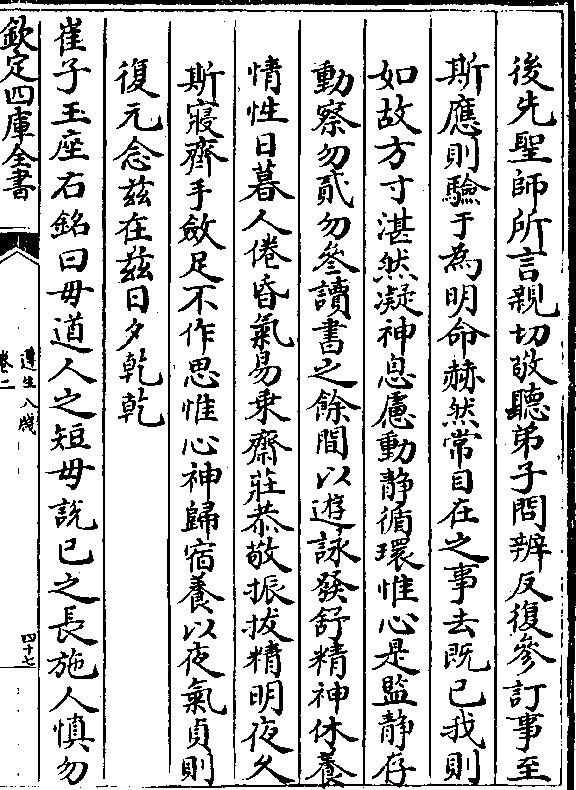 後先聖師所言親切敬聽弟子問辨反復參訂事至
斯應則驗于為明命赫然常目在之事去既已我則
如故方寸湛然凝神息慮動静循環惟心是監静存
動察勿貳勿叄讀書之餘間以遊詠發舒精神休養
情性日暮人倦昏氣易乗齋莊恭敬振拔精明夜久
斯寢齊手斂足不作思惟心神歸宿養以夜氣貞則
復元念兹在兹日夕乾乾
崔子玉座右銘曰毋道人之短毋說已之長施人慎勿
欽定四庫全書
遵生八牋
卷二
四十七